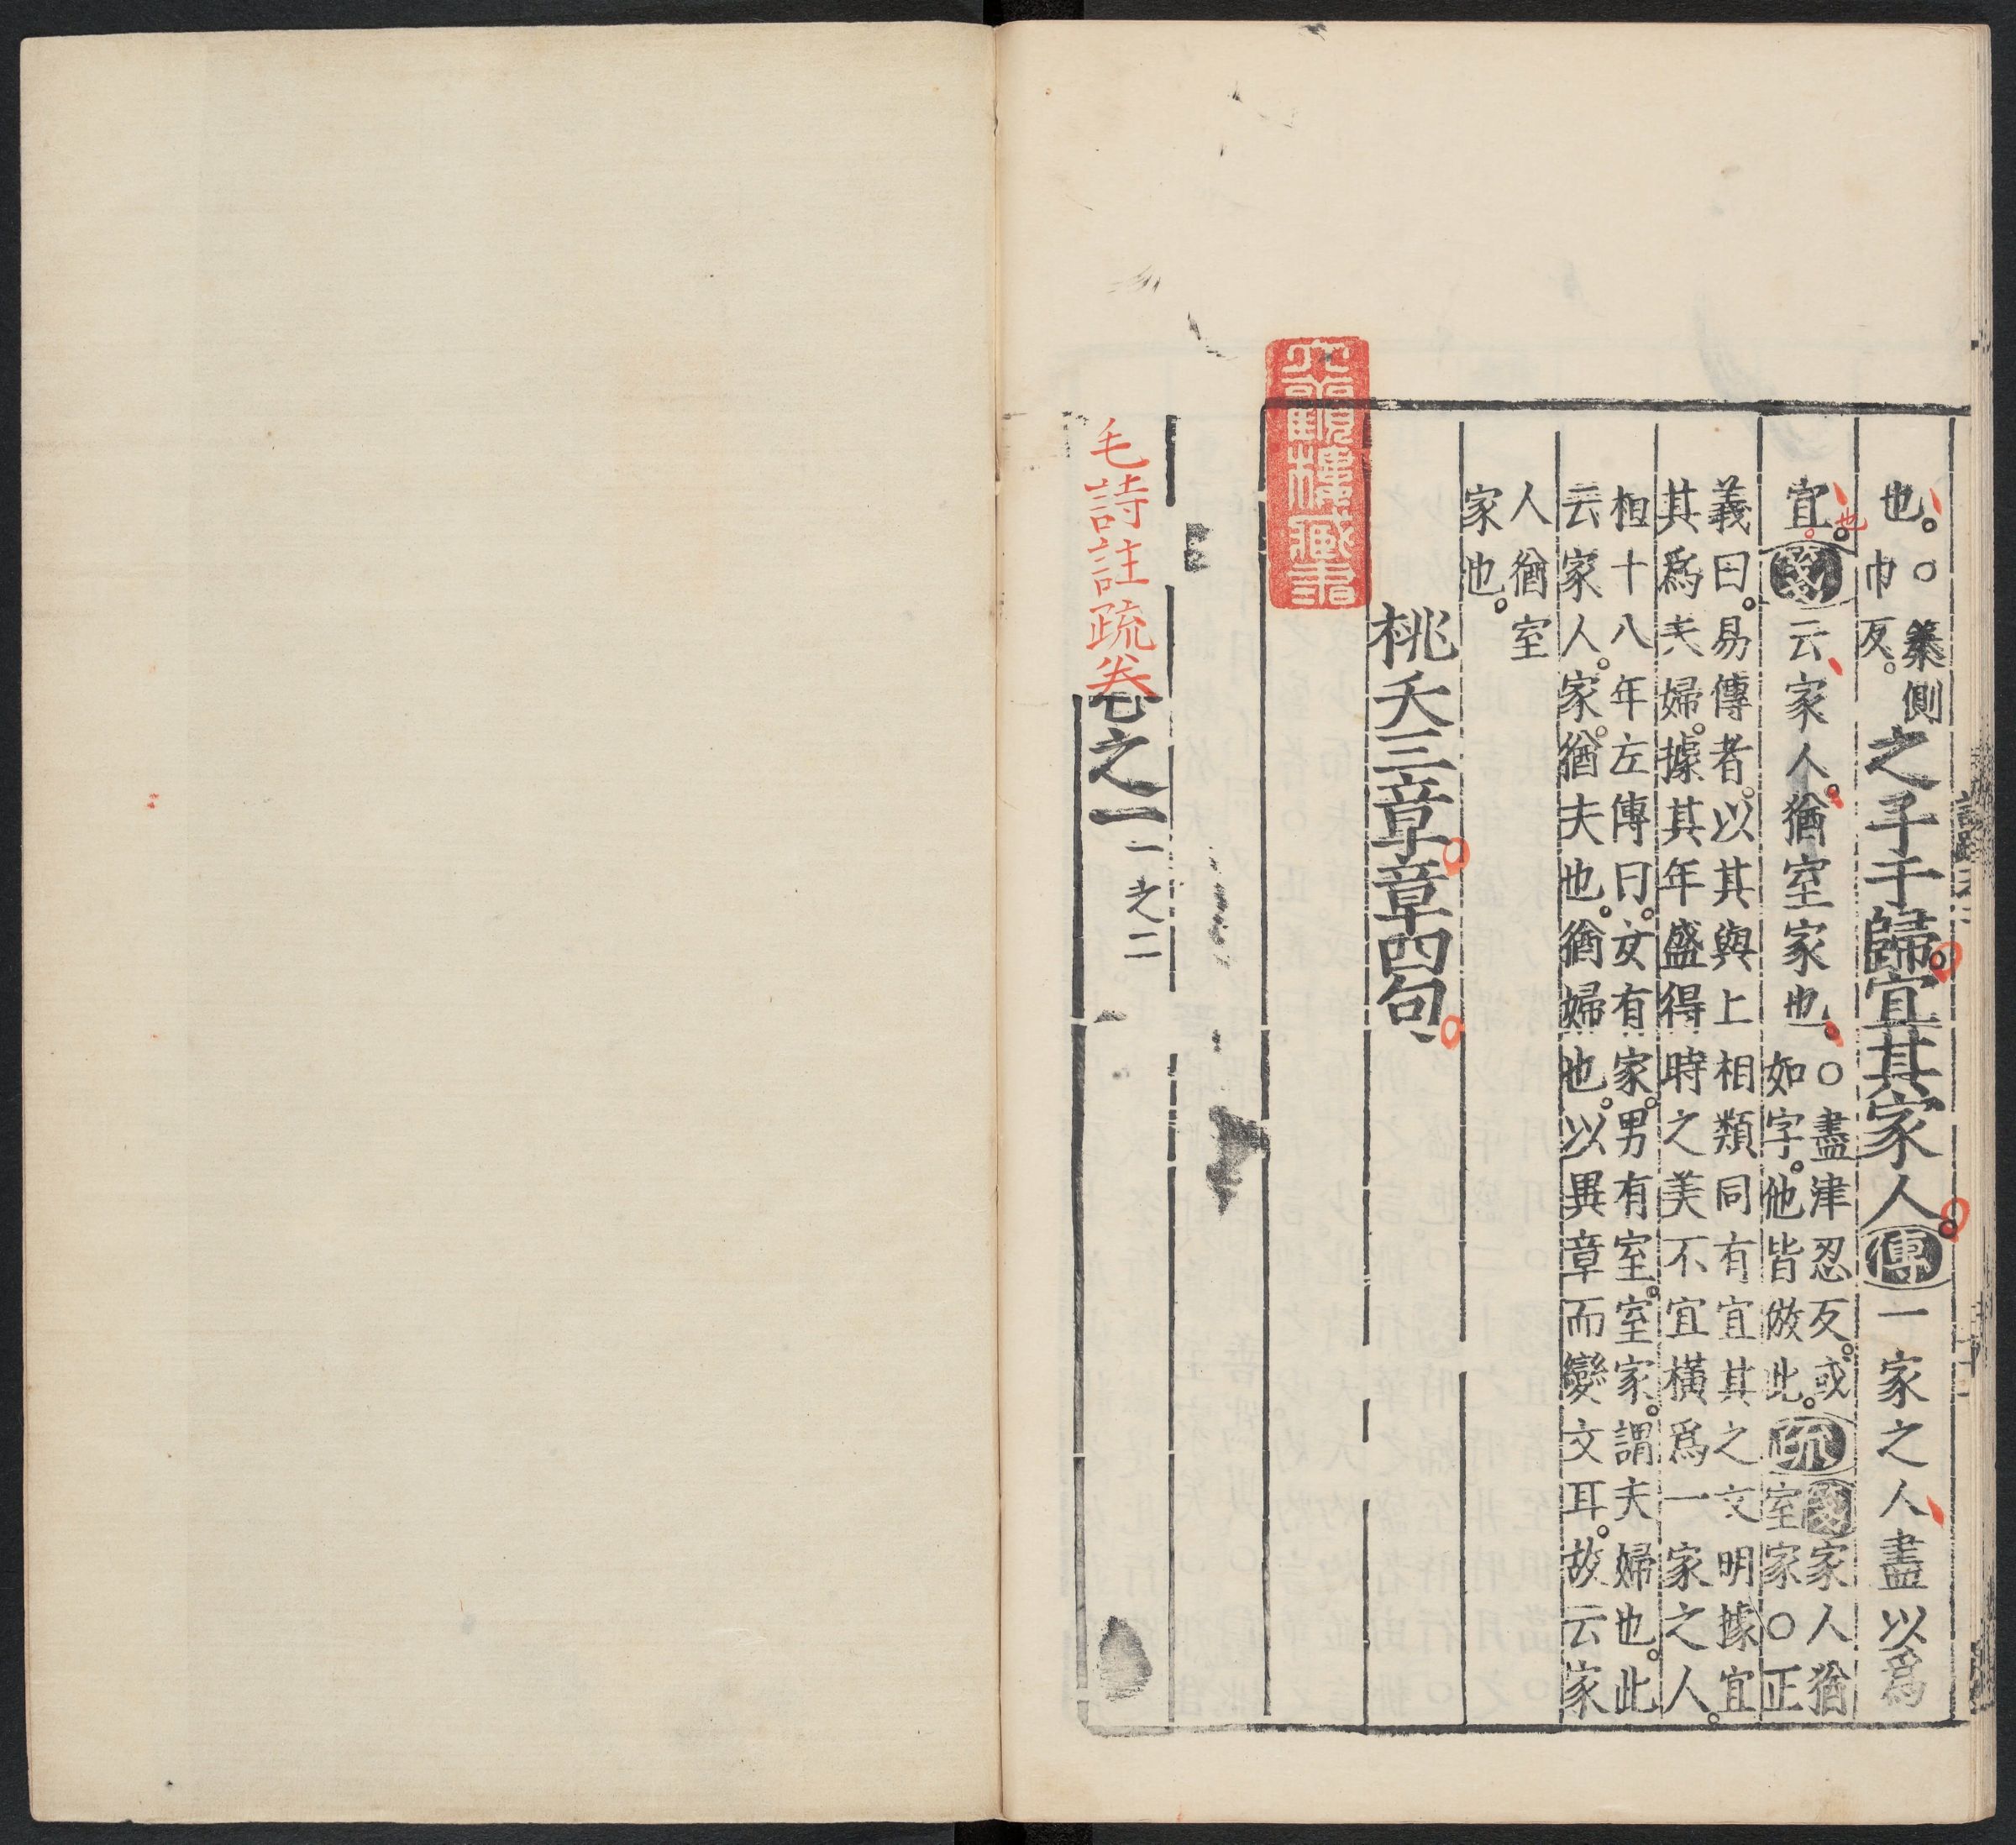 也。○蓁側
巾反。
之子于歸。宜其家人。傳一家之人盡以爲
宜。也箋云家人。猶室家也。○盡津忍反。或
如字。他皆倣此。疏箋家人猶
室家○正
義曰。易傳者。以其與上相類同有宜其之文明據宜
其爲夫婦。據其年盛得時之美不宜橫爲一家之人。
桓十八年左傳曰。女有家。男有室。室家。謂夫婦也。此
云家人。家。猶夫也。猶婦也。以異章而變文耳。故云家
人猶室
家也。
桃夭三章章四句
毛詩註疏卷之一
一之二
六觀樓藏書